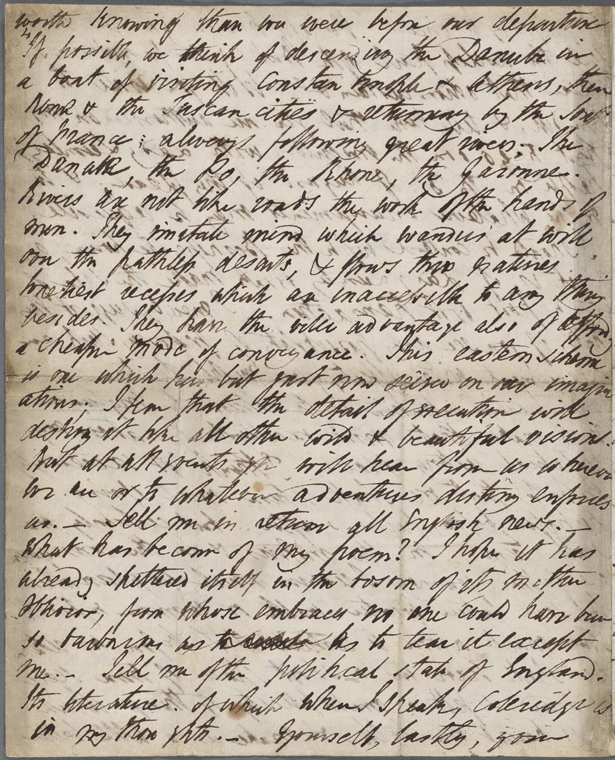 worth knowing than we were before our departure
If possible, we think of descending the Danube in
a boat of visiting Constantinople & Athens, then
Rome & the Tuscan cities & returning by the Sou
of France; always following great rivers. The
Danube, the Po, the Rhone, the Garonne.
Rivers are not like roads the work of the hands of
man. They imitate mind which wanders at will
over the pathless desarts, & flows thro natures
loneliest recesses which are inaccessible to any thing
besides. They have the viler advantage also of afford
a cheaper mode of conveyance. This eastern scheme
is one which has but just now seized on our imagin
ations. I fear that the detail of execution will
destroy it like all other wild & beautiful visions
but at all events you will hear from us wherever
we are or to whatever adventures destiny enforces
us. — Tell me in return all English news. —
What has become of my poem? I hope it has
already sheltered itself in the bosom of its mother
Oblivion, from whose embraces no one could have been
so barbarous as to tear it except
me. — Tell me of the political state of England.
Its literature. of which when I speak, Coleridge is
in my thoughts. — Yourself, lastly, your